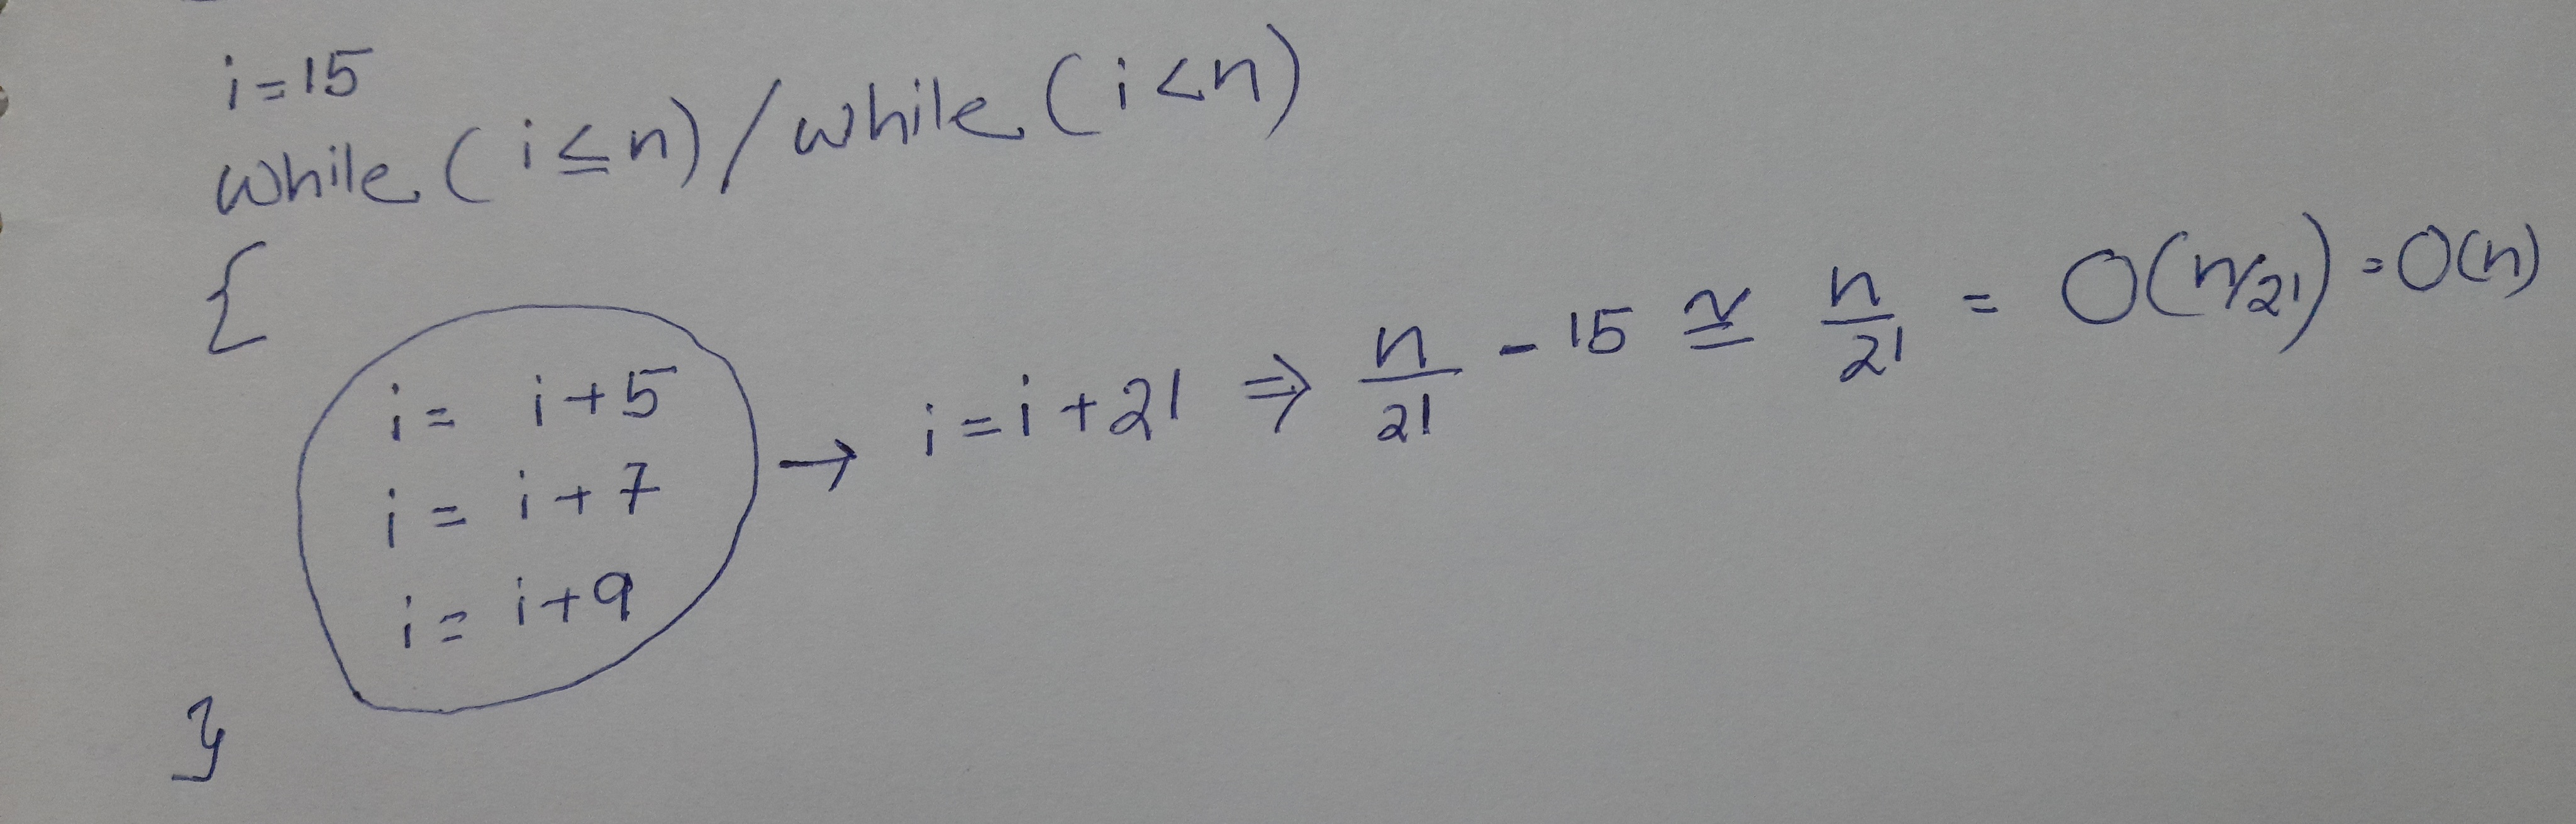 i=15
while (i≤n) / while (i<n)
{
i = i+5
i = i+7 → i=i+21 ⇒ n/21 - 15 ≅ n/21 = O(n/21) = O(n)
i = i+9
}